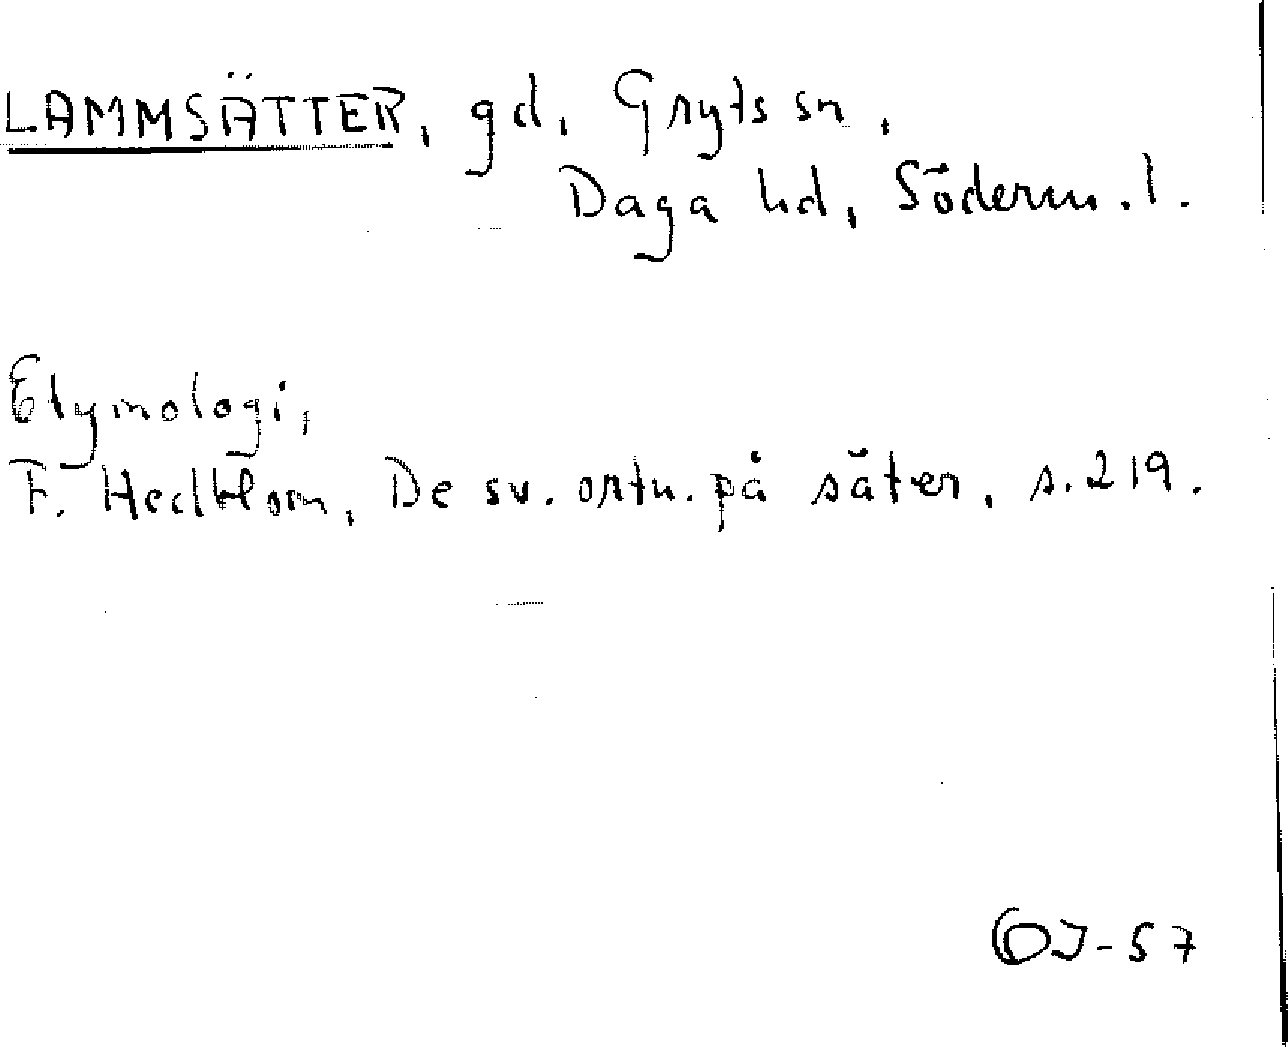 LAMMSÄTTER, gd, Gryts sn,
Daga hd, Söderm.l.
Etymologi,
F. Hedblom, De sv. ortn. på säter, s. 219.
OJ-57